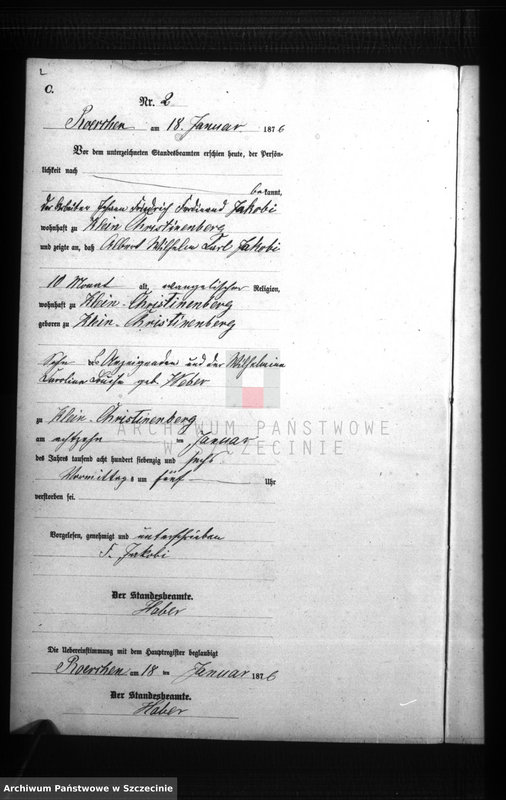 C.
Nr. 2
Roerchen am 18. Januar 1876
Vor dem unterzeichneten Standesbeamten erschien heute, der Persön-
lichkeit nach
bekannt,
der Arbeiter Johann Friedrich Ferdinand Jakobi
wohnhaft zu Klein Christinenberg
und zeigte an, daß Albert Wilhelm Carl Jakobi
10 Monat alt, evangelischer Religion,
wohnhaft zu Klein-Christinenberg
geboren zu Klein-Christinenberg
Sohn des Anzeigenden und der Wilhelmine
Caroline Louise geb. Weber
zu Klein-Christinenberg
am achtzehn ten Januar
des Jahres tausend acht hundert siebenzig und sechs
Vormittags um fünf Uhr
verstorben sei.
Vorgelesen, genehmigt und unterschrieben
F. Jakobi
Der Standesbeamte.
Haber
Die Uebereinstimmung mit dem Hauptregister beglaubigt
Roerchen am 18 ten Januar 1876
Der Standesbeamte.
Haber
ARCHIWUM PAŃSTWOWE
W SZCZECINIE
Archiwum Państwowe w Szczecinie